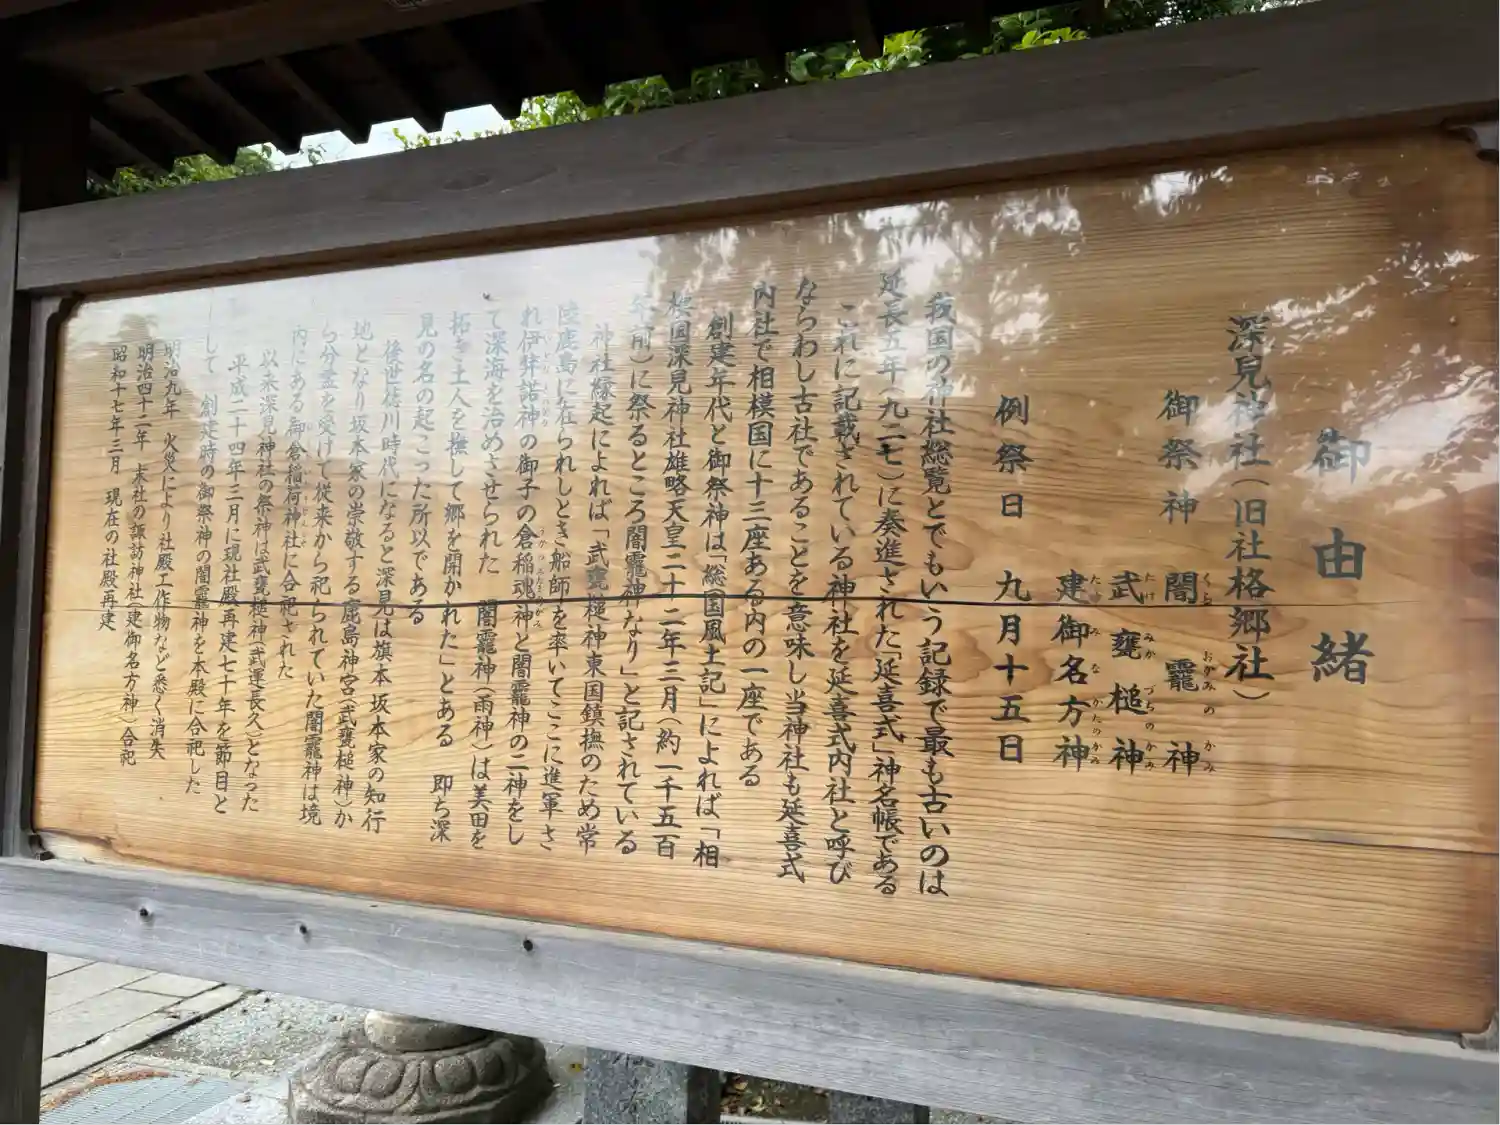 御由緒
深見神社（旧社格郷社）
御祭神 闇龗神
くら おかみの かみ
武甕槌神
たけ みか づちの かみ
建御名方神
たけ み な かたの かみ
例祭日 九月十五日
我国の神社総覧とでもいう記録で最も古いのは
延長五年（九二七）に奏進された「延喜式」神名帳である
これに記載されている神社を延喜式内社と呼び
ならわし古社であることを意味し当神社も延喜式
内社で相模国に十三座ある内の一座である
創建年代と御祭神は「総国風土記」によれば「相
模国深見神社雄略天皇二十二年三月（約一千五百
年前）に祭るところ闇龗神なり」と記されている
神社縁起によれば「武甕槌神東国鎮撫のため常
陸鹿島に在られしとき船師を率いてここに進軍さ
れ伊弉諾神の御子の倉稲魂神と闇龗神の二神をし
て深海を治めさせられた 闇龗神（雨神）は美田を
拓き土人を撫して郷を開かれた」とある 即ち深
見の名の起こった所以である
後世徳川時代になると深見は旗本坂本家の知行
地となり坂本家の崇敬する鹿島神宮（武甕槌神）か
ら分霊を受けて従来から祀られていた闇龗神は境
内にある御倉稲荷神社に合祀された
以来深見神社の祭神は武甕槌神（武運長久）となった
平成二十四年三月に現社殿再建七十年を節目と
して 創建時の御祭神の闇龗神を本殿に合祀した
明治九年 火災により社殿工作物など悉く消失
明治四十二年 末社の諏訪神社（建御名方神）合祀
昭和十七年三月 現在の社殿再建